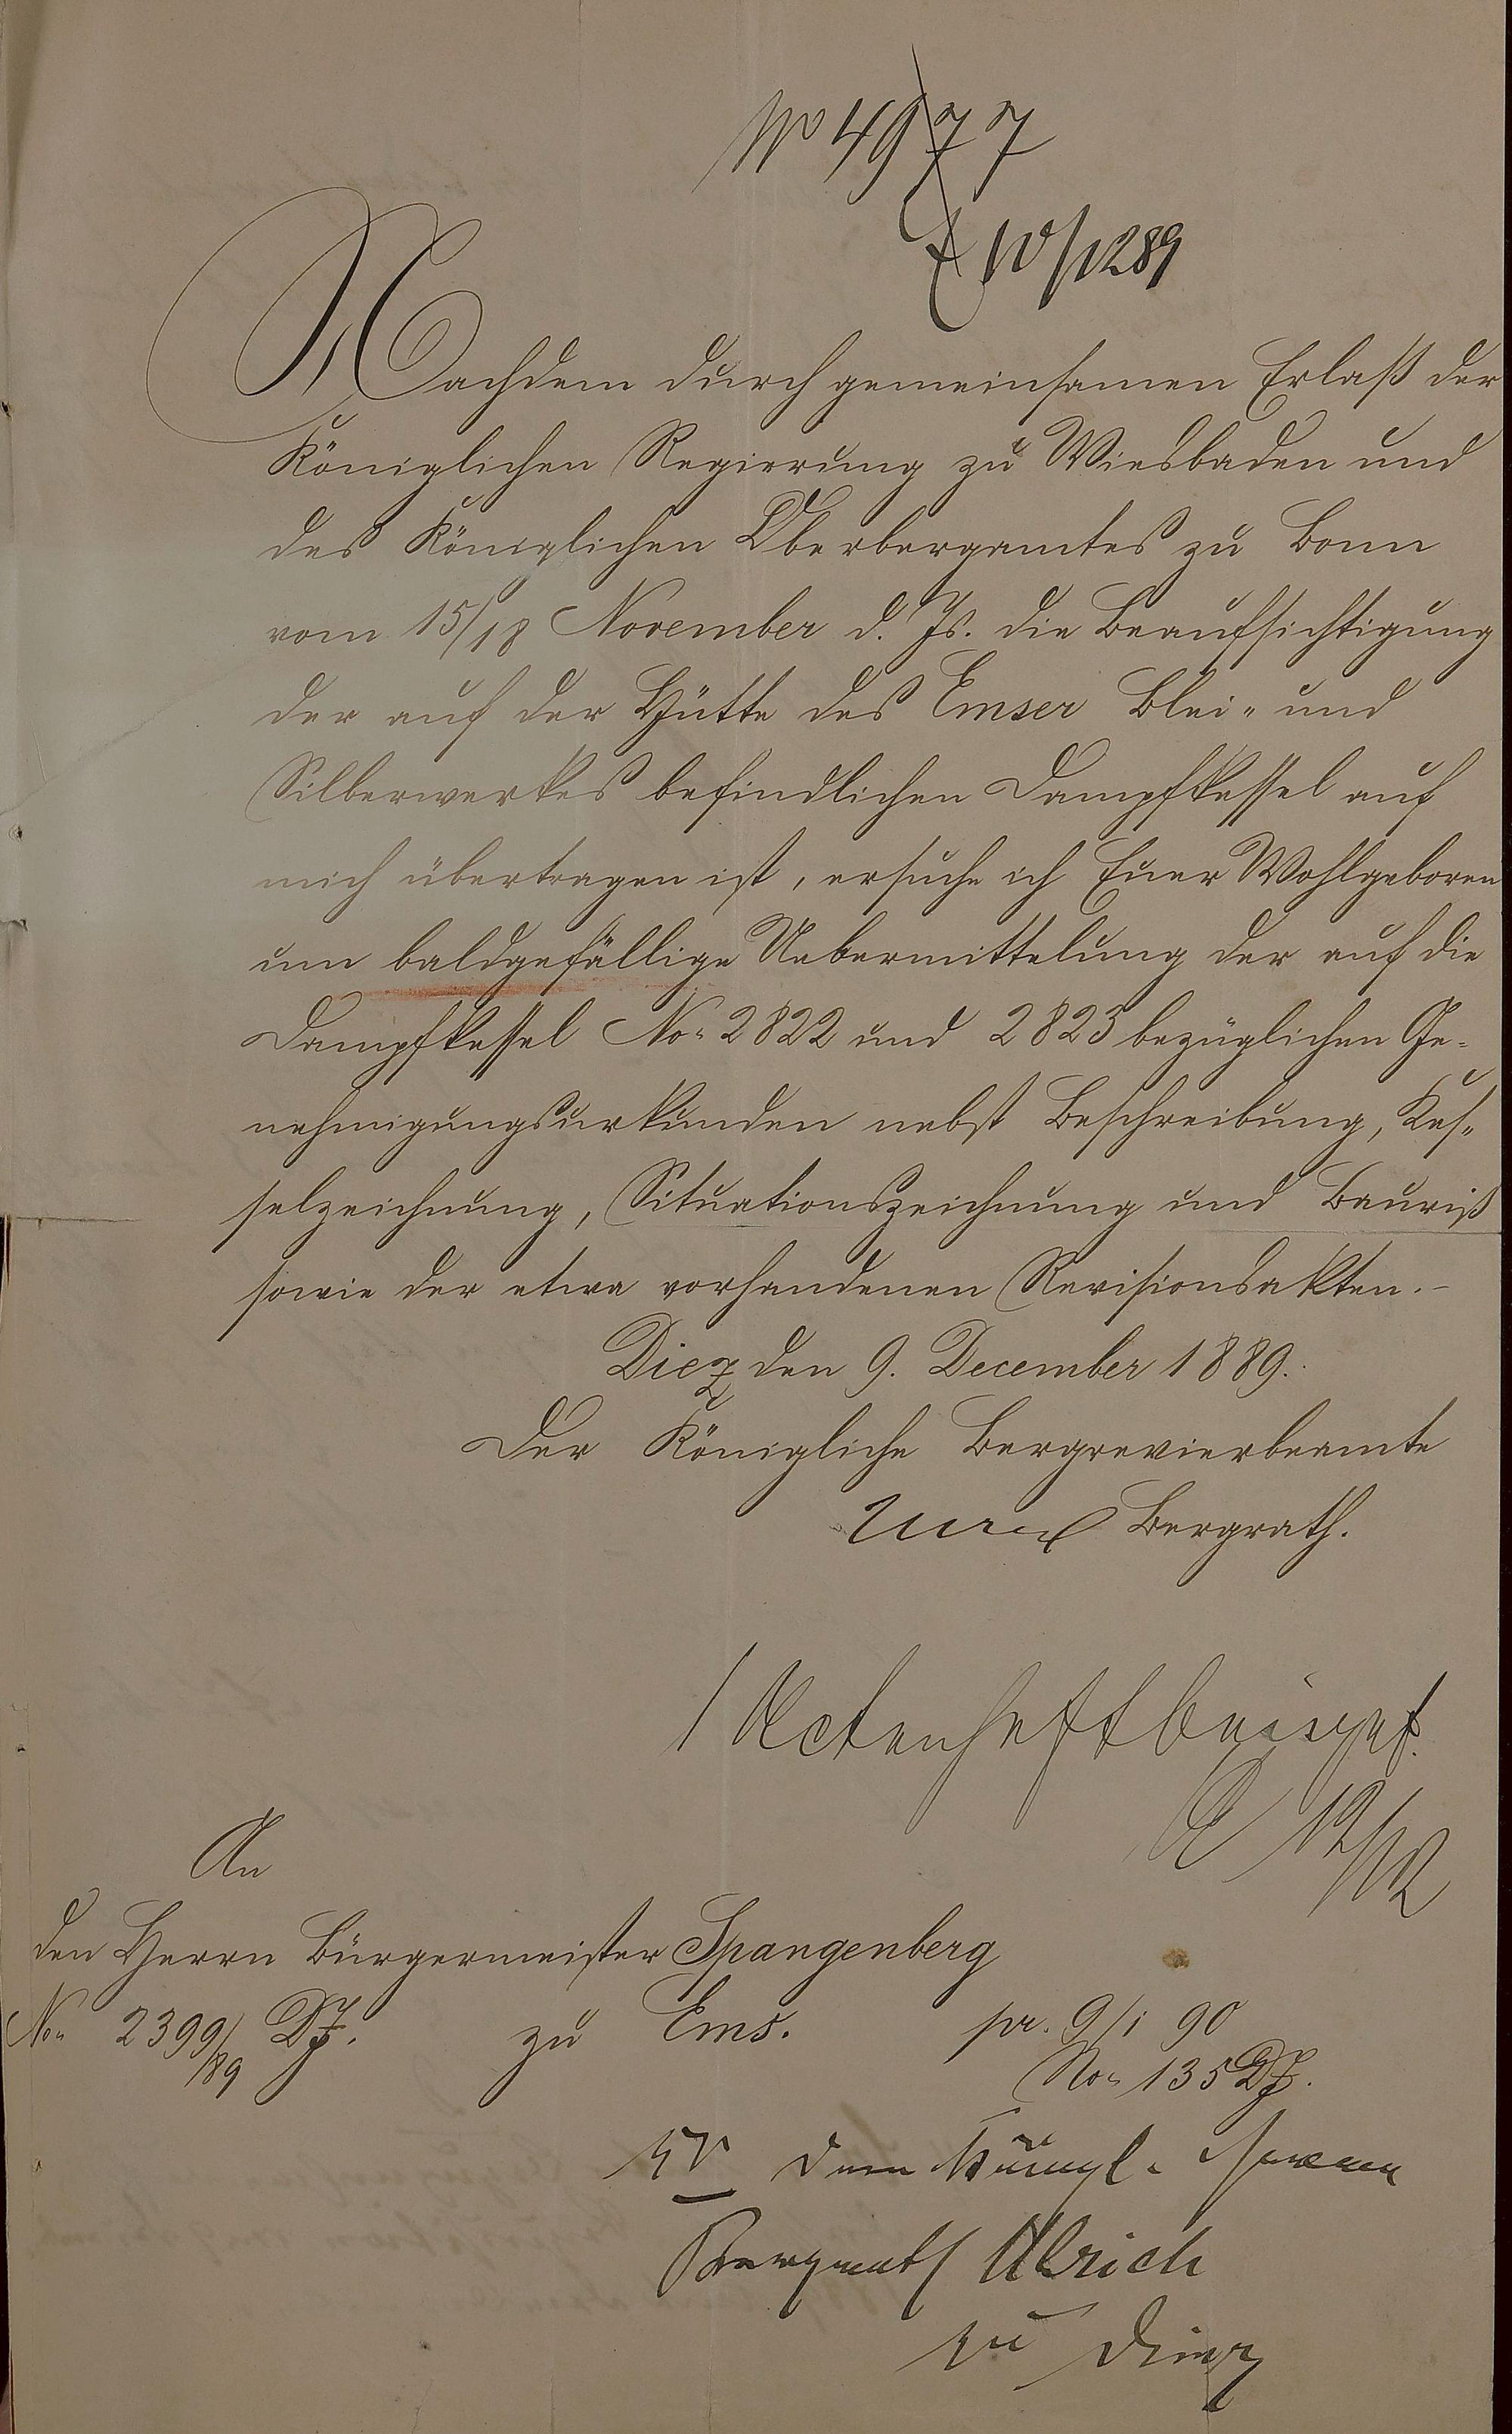 No 4977
10/12 89
Nachdem durch gemeinsamen Erlaß der
Königlichen Regierung zu Wiesbaden und
des Königlichen Oberbergamtes zu Bonn
vom 15/18 November d. Js. die Beaufsichtigung
der auf der Hütte des Emser Blei- und
Silberwerkes befindlichen Dampfkessel auf
mich übertragen ist, ersuche ich Euer Wohlgeboren
um baldgefällige Uebermittelung der auf die
Dampfkessel No. 2822 und 2823 bezüglichen Ge-
nehmigungsurkunden nebst Beschreibung, Kes-
selzeichnung, Situationszeichnung und Bauriß
sowie der etwa vorhandenen Revisionsakten.-
Diez den 9. December 1889.
Der Königliche Bergrevierbeamte
Bergrath.
1 Actenheft beigef.
12/12
An
den Herrn Bürgermeister Spangenberg
No. 2399/89 DJ. zu Ems.
pr. 9/1 90
No. 135 DJ.
dem Königl. Herrn
Bergrath Ulrich
zu Diez